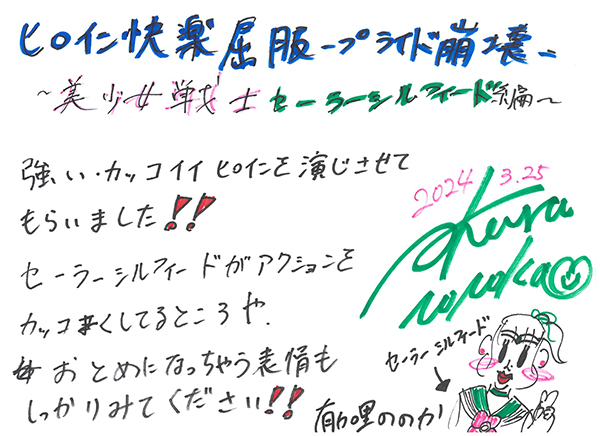 ヒロイン快楽屈服-プライド崩壊-
～美少女戦士セーラーシルフィード編～
強い・カッコイイヒロインを演じさせて
もらいました!!
セーラーシルフィードがアクションを
カッコよくしてるところや、
おとめになっちゃう表情も
しっかりみてください!!
2024 3.25
セーラーシルフィード
有加里ののか